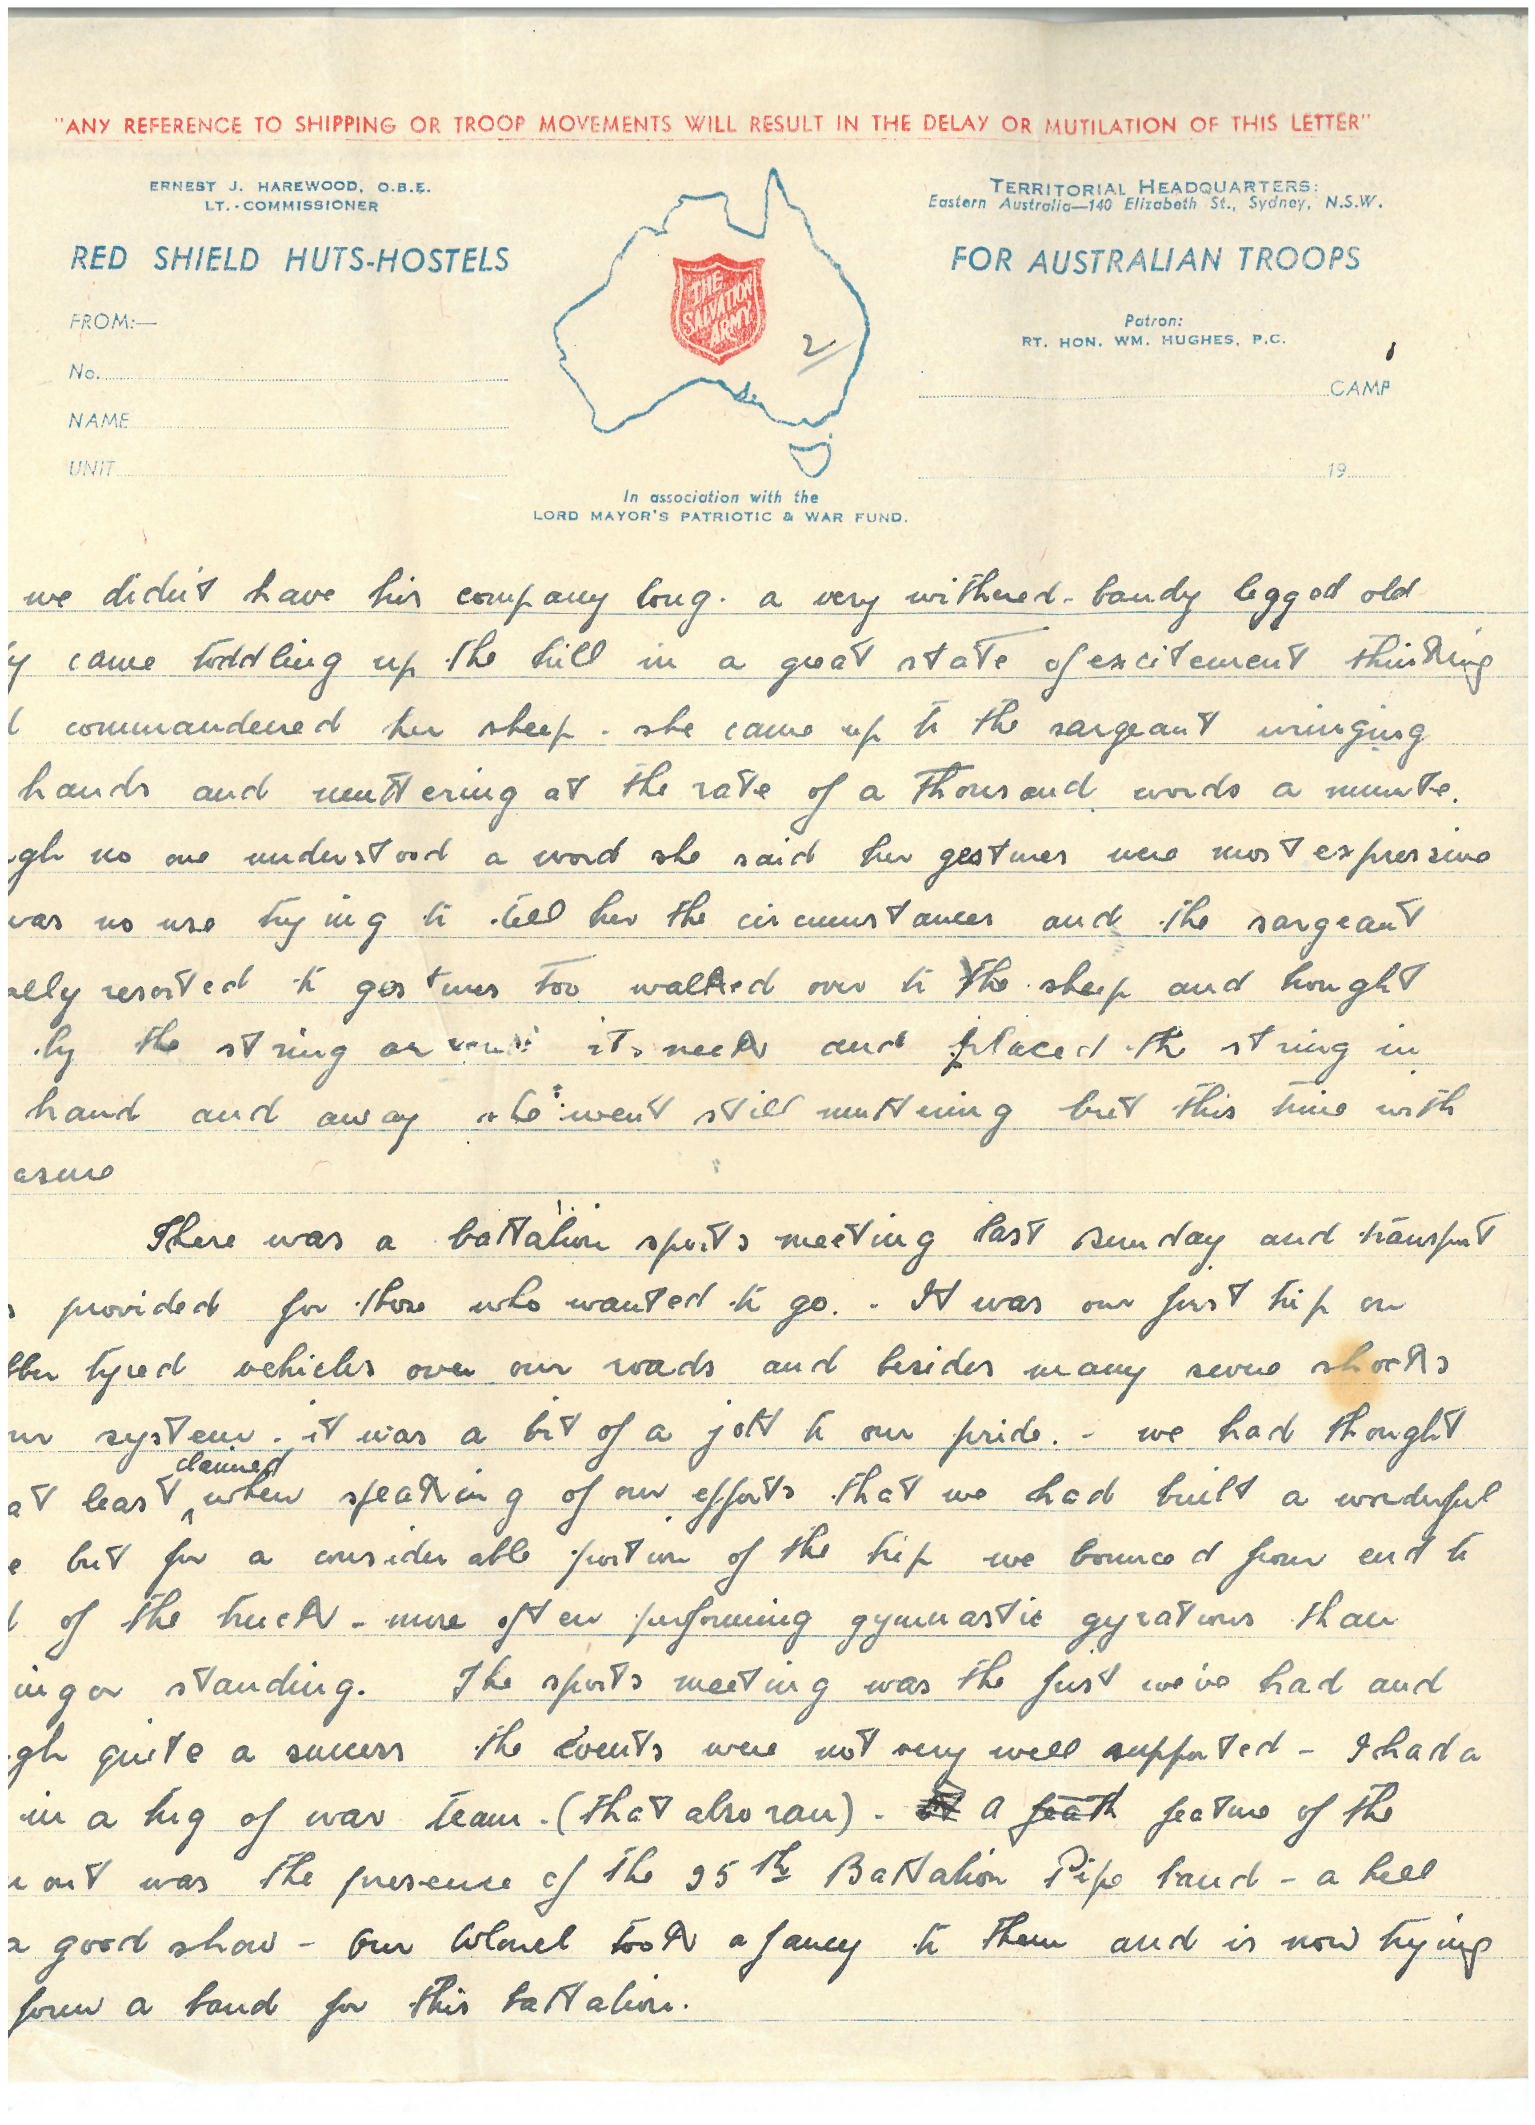 "ANY REFERENCE TO SHIPPING OR TROOP MOVEMENTS WILL RESULT IN THE DELAY OR MUTILATION OF THIS LETTER"
ERNEST J. HAREWOOD, O.B.E.
LT.-COMMISSIONER
TERRITORIAL HEADQUARTERS:
Eastern Australia—140 Elizabeth St., Sydney, N.S.W.
RED SHIELD HUTS-HOSTELS
FOR AUSTRALIAN TROOPS
THE SALVATION ARMY
2/
FROM:—
Patron:
RT. HON. WM. HUGHES, P.C.
No.
CAMP
NAME
UNIT
19
In association with the
LORD MAYOR'S PATRIOTIC & WAR FUND.
we didn't have his company long. a very withered - bandy legged old
y came toddling up the hill in a great state of excitement thinking
commandered her sheep - she came up to the sargeant wringing
hands and muttering at the rate of a thousand words a minute.
gh no one understood a word she said her gestures were most expressive
was no use trying to tell her the circumstances and the sargeant
ally resorted to gestures too walked over to the sheep and bought
by the string around its neck and placed the string in
hand and away she went still muttering but this time with
asure
There was a battalion sports meeting last Sunday and transport
s provided for those who wanted to go. - It was our first trip on
bber tyred vehicles over our roads and besides many severe shocks
ur system - it was a bit of a jolt to our pride. - we had thought
at least claimed when speaking of our efforts that we had built a wonderful
e but for a considerable portion of the trip we bounced from end to
d of the truck - more often performing gymnastic gyrations than
ing or standing. The sports meeting was the first we've had and
gh quite a success the events were not very well supported - I had a
in a tug of war team - (that also ran) - A feath feature of the
out was the presence of the 25th Battalion Pipe band - a hell
a good show - Our Colonel took a fancy to them and is now trying
form a band for this battalion.